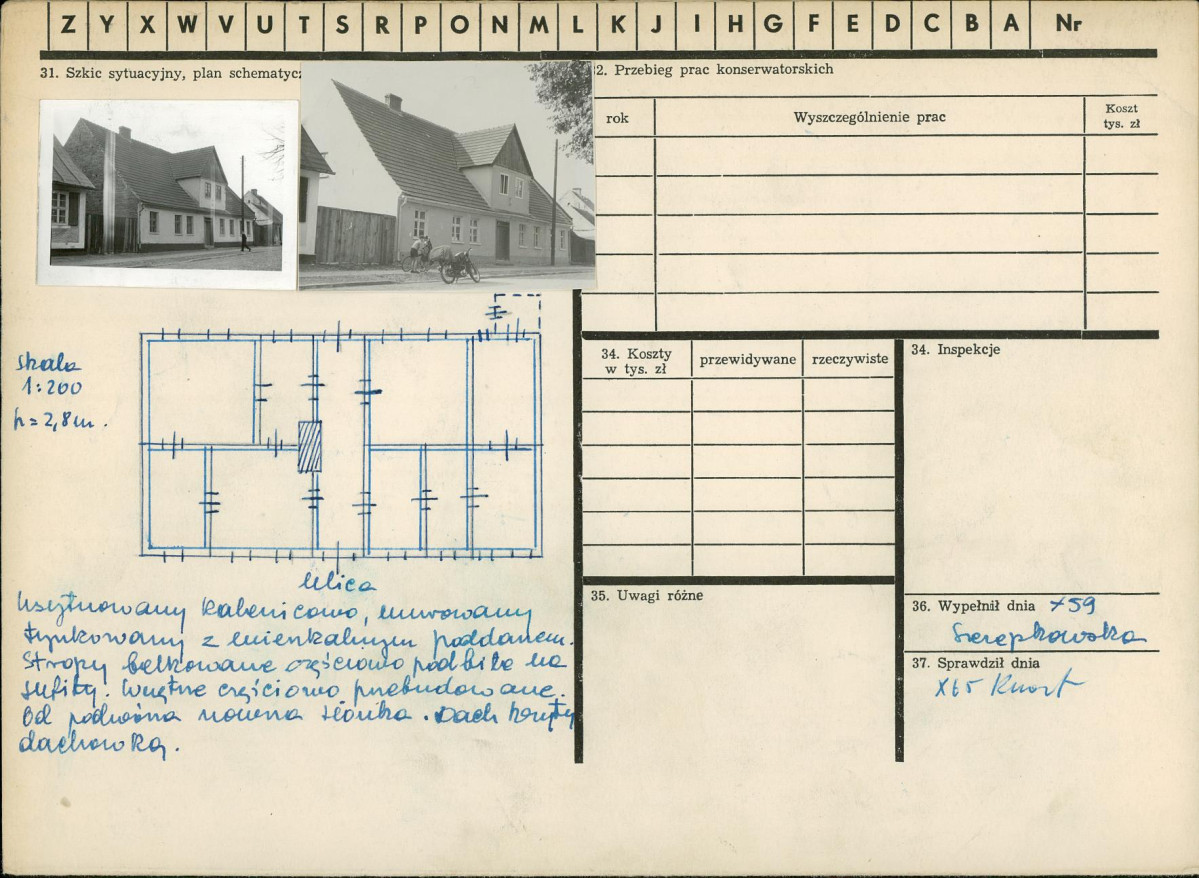 Z Y X W V U T S R P O N M L K J I H G F E D C B A Nr
31. Szkic sytuacyjny, plan schematycz
2. Przebieg prac konserwatorskich
rok
Wyszczególnienie prac
Koszt
tys. zł
skala
1:200
h = 2,8 m.
Ulica
Usytuowany kalenicowo, murowany
tynkowany z mieszkalnym poddaszem.
Stropy belkowane częściowo podbite na
sufity. Wnętrze częściowo przebudowane.
Od podwórza nowsza sionka. Dach kryty
dachówką.
34. Koszty
w tys. zł
przewidywane
rzeczywiste
34. Inspekcje
35. Uwagi różne
36. Wypełnił dnia X 59
37. Sprawdził dnia
X 65